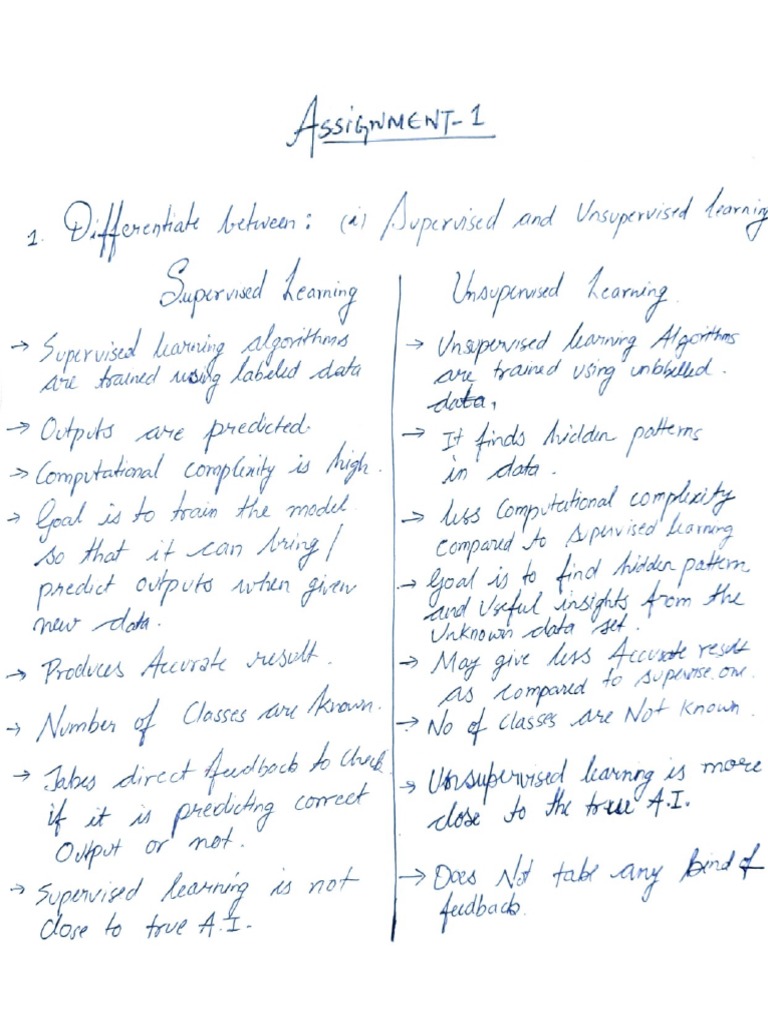 ASSIGNMENT-1
1. Differentiate between: (i) Supervised and Unsupervised learning
Supervised Learning
→ Supervised learning algorithms
are trained using labeled data
→ Outputs are predicted.
→ Computational complexity is high.
→ Goal is to train the model
so that it can bring/
predict outputs when given
new data.
→ Produces Accurate result.
→ Number of Classes are known.
→ Takes direct feedback to check
if it is predicting correct
Output or not.
→ Supervised learning is not
close to true A.I.
Unsupervised Learning
→ Unsupervised learning Algorithms
are trained using unlablled.
data,
→ It finds hidden patterns
in data.
→ less Computational complexity
compared to supervised learning
→ Goal is to find hidden pattern
and Useful insights from the
Unknown data set.
→ May give less Accurate result
as compared to supervise one.
→ No of Classes are Not Known.
→ Unsupervised learning is more
close to the true A.I.
→ Does Not take any kind of
feedback.